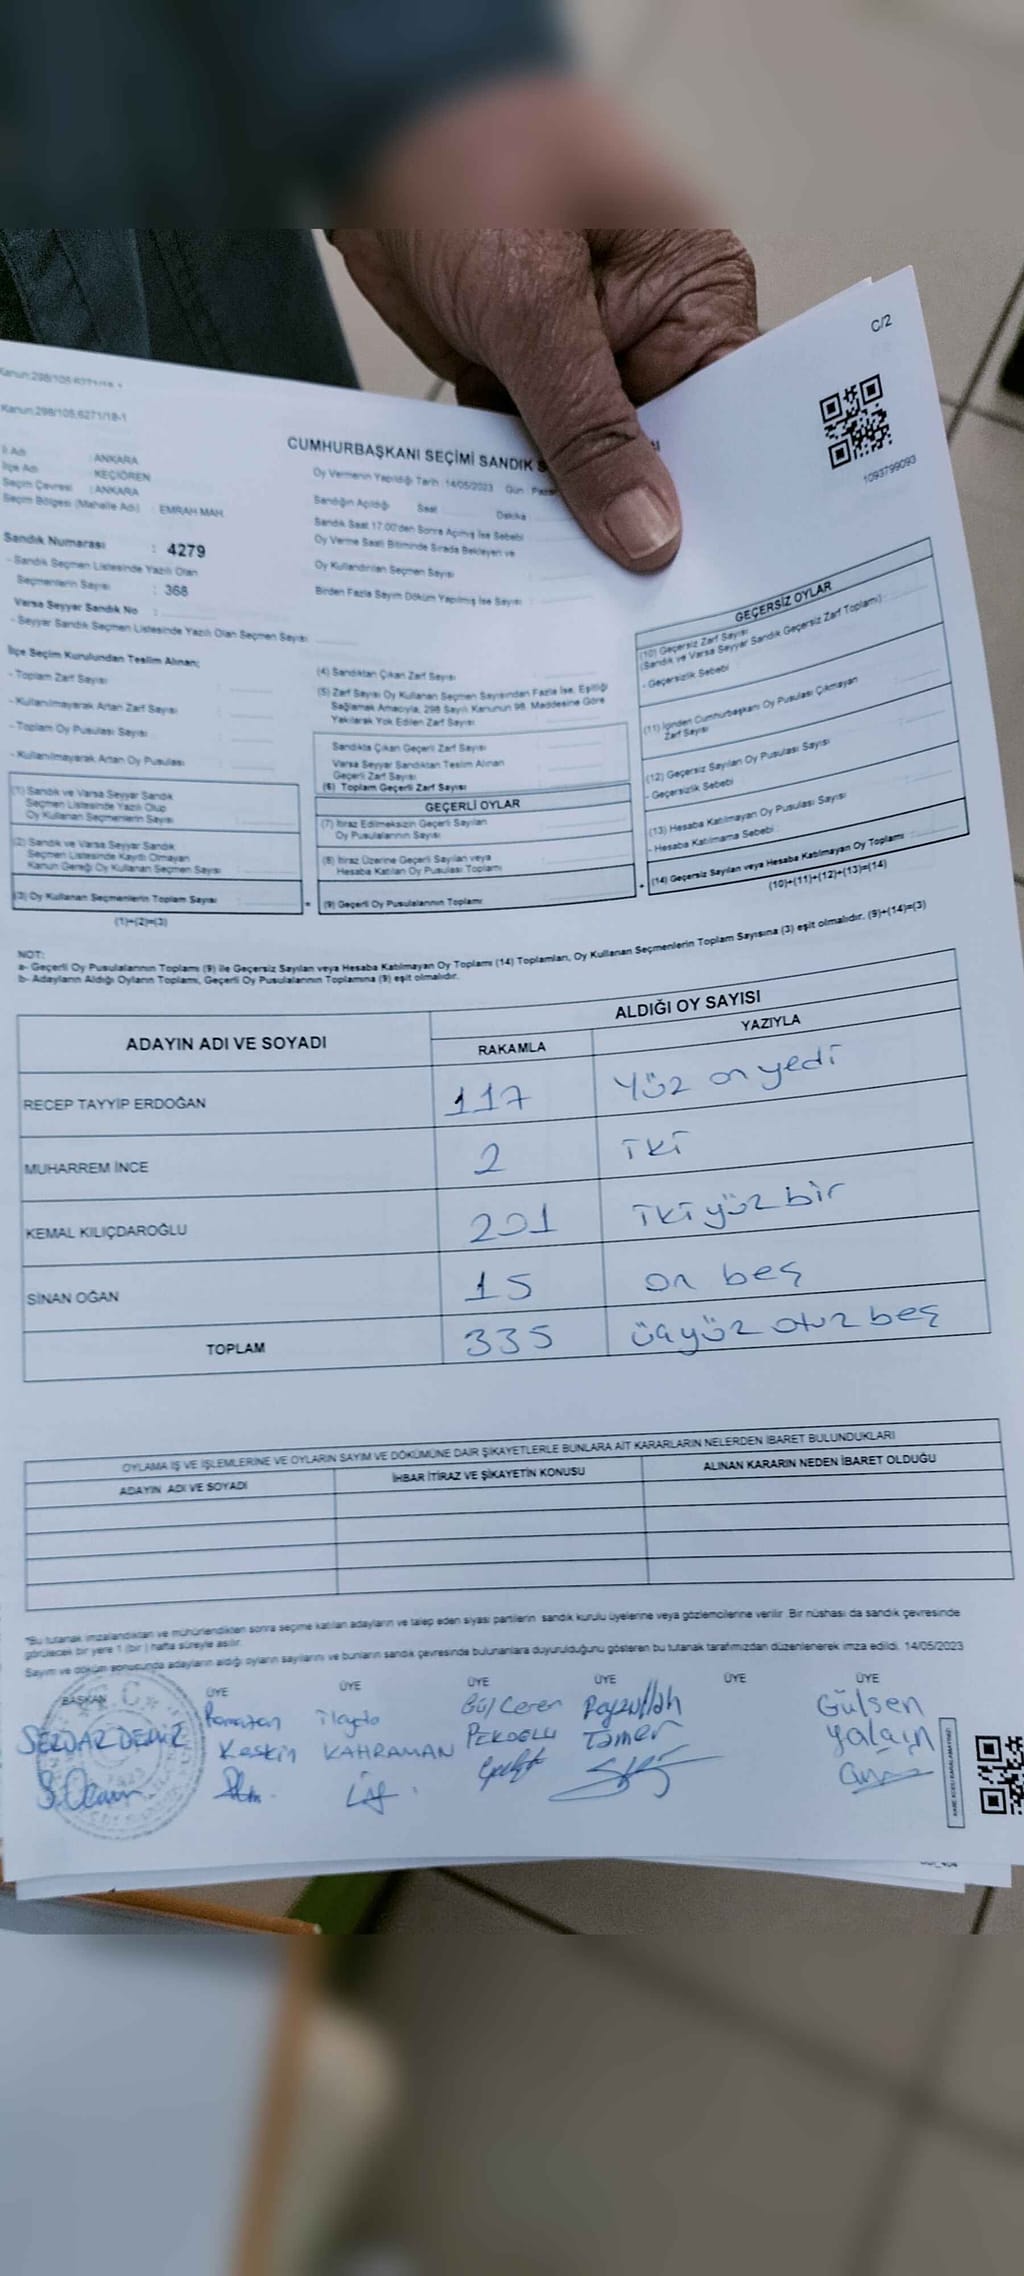 C/2
Kanun:298/105,6271/18-1
Kanun:298/105,6271/18-1
1093799093
CUMHURBAŞKANI SEÇİMİ SANDIK
İl Adı : ANKARA
İlçe Adı : KEÇİÖREN
Seçim Çevresi : ANKARA
Seçim Bölgesi (Mahalle Adı) : EMRAH MAH.
Sandık Numarası : 4279
- Sandık Seçmen Listesinde Yazılı Olan
Seçmenlerin Sayısı : 368
Varsa Seyyar Sandık No :
- Seyyar Sandık Seçmen Listesinde Yazılı Olan Seçmen Sayısı
Oy Vermenin Yapıldığı Tarih :14/05/2023 Gün : Pazar
Sandığın Açıldığı Saat Dakika
Sandık Saat 17.00'den Sonra Açılmış İse Sebebi
Oy Verme Saati Bitiminde Sırada Bekleyen ve
Oy Kullandırılan Seçmen Sayısı
Birden Fazla Sayım Döküm Yapılmış İse Sayısı
İlçe Seçim Kurulundan Teslim Alınan;
- Toplam Zarf Sayısı
- Kullanılmayarak Artan Zarf Sayısı
- Toplam Oy Pusulası Sayısı
- Kullanılmayarak Artan Oy Pusulası
(1) Sandık ve Varsa Seyyar Sandık
Seçmen Listesinde Yazılı Olup
Oy Kullanan Seçmenlerin Sayısı
(2) Sandık ve Varsa Seyyar Sandık
Seçmen Listesinde Kayıtlı Olmayan
Kanun Gereği Oy Kullanan Seçmen Sayısı
(3) Oy Kullanan Seçmenlerin Toplam Sayısı
(1)+(2)=(3)
(4) Sandıktan Çıkan Zarf Sayısı
(5) Zarf Sayısı Oy Kullanan Seçmen Sayısından Fazla İse, Eşitliği
Sağlamak Amacıyla, 298 Sayılı Kanunun 98. Maddesine Göre
Yakılarak Yok Edilen Zarf Sayısı
Sandıkta Çıkan Geçerli Zarf Sayısı
Varsa Seyyar Sandıktan Teslim Alınan
Geçerli Zarf Sayısı
(6) Toplam Geçerli Zarf Sayısı
GEÇERLİ OYLAR
(7) İtiraz Edilmeksizin Geçerli Sayılan
Oy Pusulalarının Sayısı
(8) İtiraz Üzerine Geçerli Sayılan veya
Hesaba Katılan Oy Pusulası Toplamı
(9) Geçerli Oy Pusulalarının Toplamı
GEÇERSİZ OYLAR
(10) Geçersiz Zarf Sayısı
(Sandık ve Varsa Seyyar Sandık Geçersiz Zarf Toplamı) :
- Geçersizlik Sebebi
(11) İçinden Cumhurbaşkanı Oy Pusulası Çıkmayan
Zarf Sayısı
(12) Geçersiz Sayılan Oy Pusulası Sayısı
- Geçersizlik Sebebi
(13) Hesaba Katılmayan Oy Pusulası Sayısı
- Hesaba Katılmama Sebebi
(14) Geçersiz Sayılan veya Hesaba Katılmayan Oy Toplamı :
(10)+(11)+(12)+(13)=(14)
NOT:
a- Geçerli Oy Pusulalarının Toplamı (9) ile Geçersiz Sayılan veya Hesaba Katılmayan Oy Toplamı (14) Toplamları, Oy Kullanan Seçmenlerin Toplam Sayısına (3) eşit olmalıdır. (9)+(14)=(3)
b- Adayların Aldığı Oyların Toplamı, Geçerli Oy Pusulalarının Toplamına (9) eşit olmalıdır.
ADAYIN ADI VE SOYADI ALDIĞI OY SAYISI
RAKAMLA YAZIYLA
RECEP TAYYİP ERDOĞAN 117 yüz on yedi
MUHARREM İNCE 2 iki
KEMAL KILIÇDAROĞLU 201 iki yüz bir
SİNAN OĞAN 15 on beş
TOPLAM 335 üçyüz otuz beş
OYLAMA İŞ VE İŞLEMLERİNE VE OYLARIN SAYIM VE DÖKÜMÜNE DAİR ŞİKAYETLERLE BUNLARA AİT KARARLARIN NELERDEN İBARET BULUNDUKLARI
ADAYIN ADI VE SOYADI İHBAR İTİRAZ VE ŞİKAYETİN KONUSU ALINAN KARARIN NEDEN İBARET OLDUĞU
*Bu tutanak imzalandıktan ve mühürlendikten sonra seçime katılan adayların ve talep eden siyasi partilerin sandık kurulu üyelerine veya gözlemcilerine verilir. Bir nüshası da sandık çevresinde
görülecek bir yere 1 (bir) hafta süreyle asılır.
Sayım ve döküm sonucunda adayların aldığı oyların sayılarını ve bunların sandık çevresinde bulunanlara duyurulduğunu gösteren bu tutanak tarafımızdan düzenlenerek imza edildi. 14/05/2023
BAŞKAN ÜYE ÜYE ÜYE ÜYE ÜYE ÜYE
SERDAR DEMİR Ramazan Keskin İlayda KAHRAMAN Gül Ceren PEKOĞLU Feyzullah Tamer Gülsen Yalçın